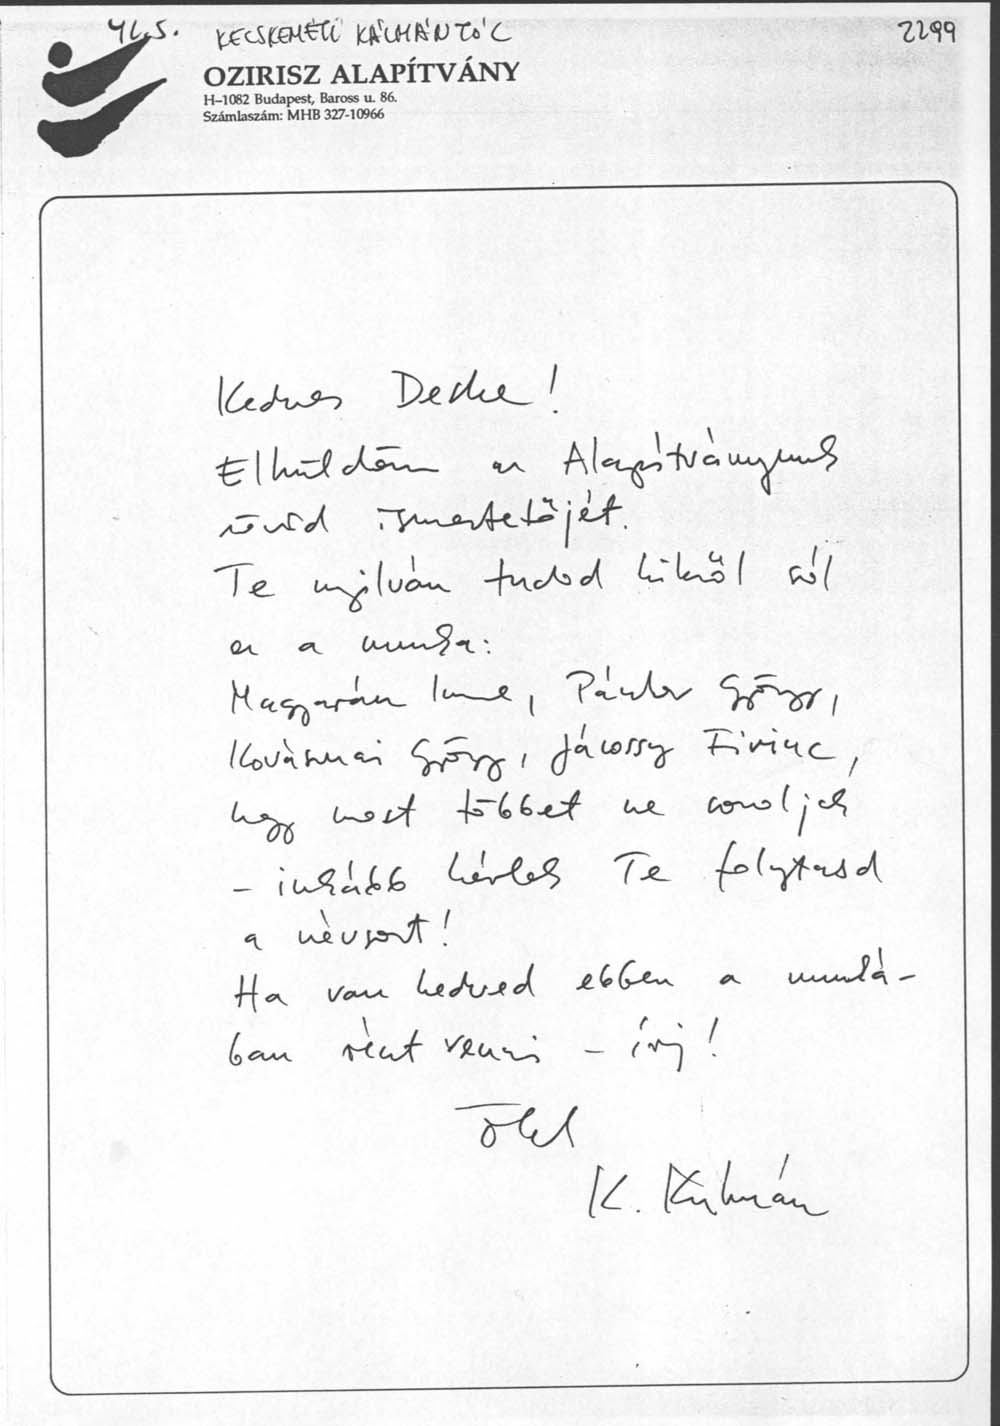 46.5. KECSKEMÉTI KÁLMÁNTÓL 2299
OZIRISZ ALAPÍTVÁNY
H–1082 Budapest, Baross u. 86.
Számlaszám: MHB 327-10966
Kedves Decke!
Elküldöm az Alapítványunk
rövid ismertetőjét.
Te nyilván tudod kikről szól
ez a munka:
Magyarász Imre, Pándor György,
Kovásznai György, Jácossy Firinc,
hogy most többet ne soroljak
– inkább kérlek Te folytasd
a névsort!
Ha van kedved ebben a munká-
ban részt venni – írj!
Ölel
K. Kálmán